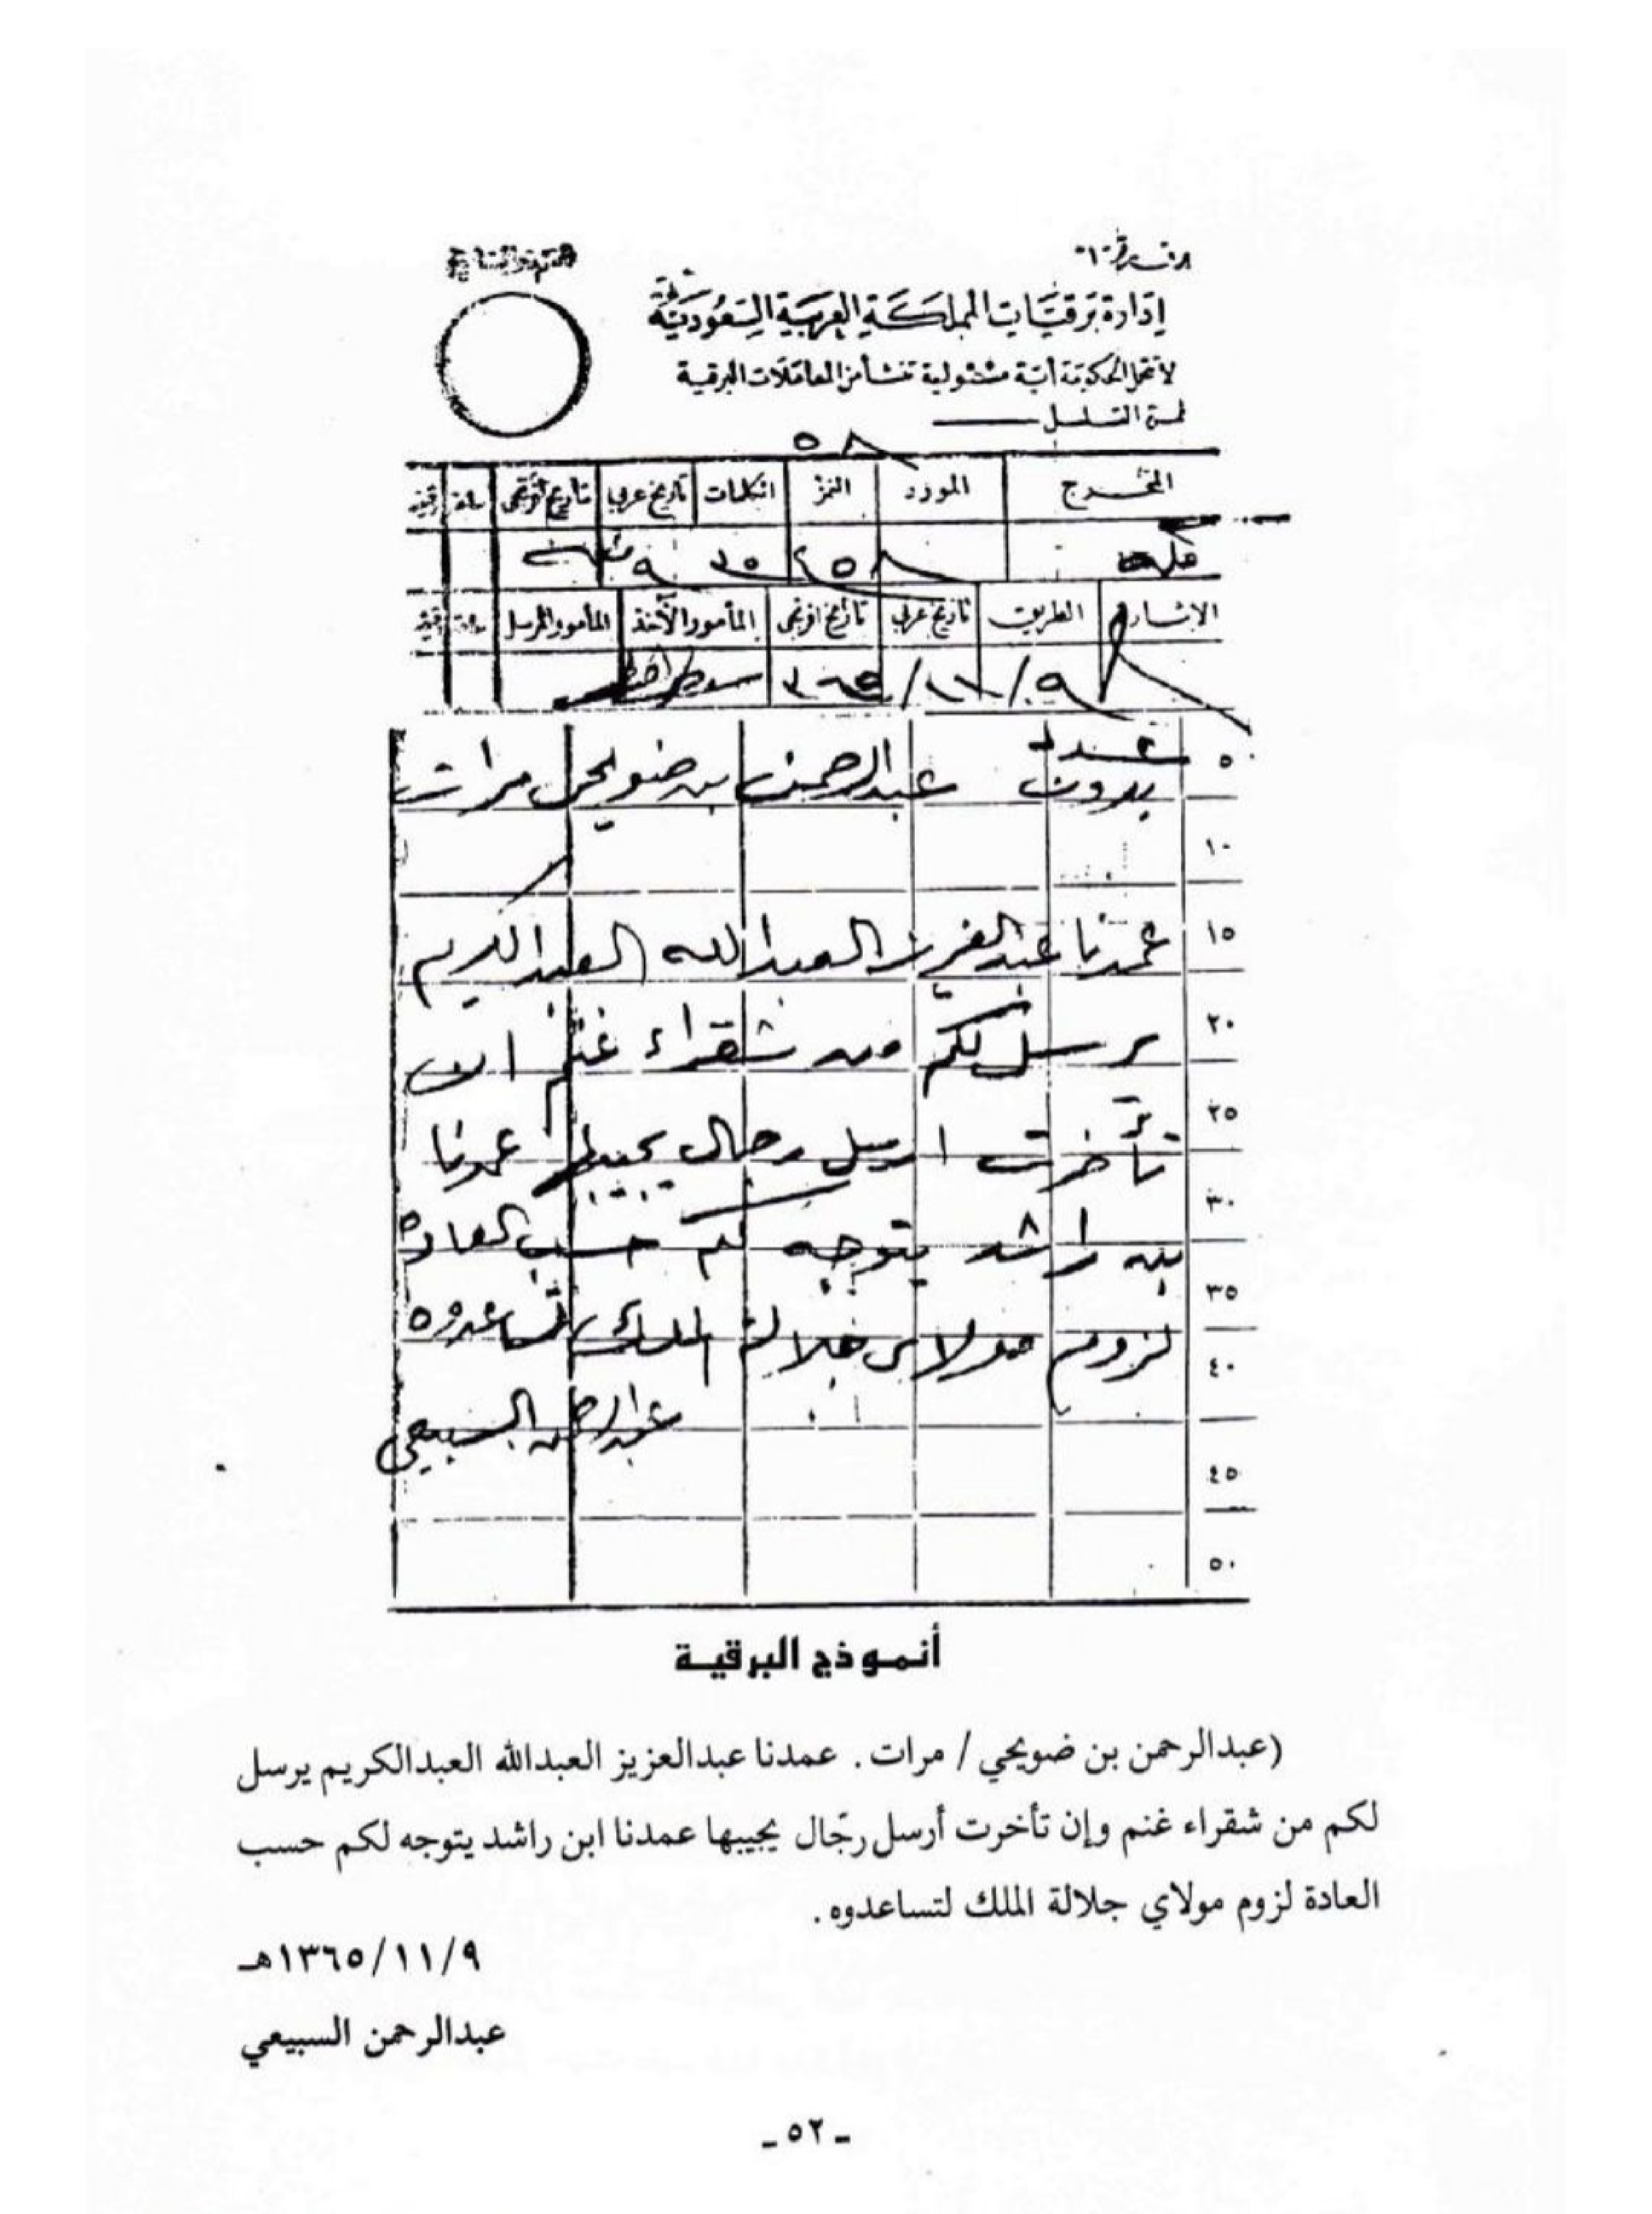 إدارة برقيات المملكة العربية السعودية
لا تتحمل الحكومة أية مسئولية تنشأ من المعاملات البرقية
نمرة التسلسل
٥٨
المخرج المورد النمر الكلمات تاريخ عربي تاريخ أفرنجي ساعة دقيقة
مكه ٥٨ ٣٥ ٩
الطريق تاريخ عربي تاريخ افرنجي المأمور الآخذ المأمور المرسل ساعة دقيقة
٩/١١/٣٦٥
٥
بدون عبدالرحمن بن ضويحي مرات
١٠
١٥ عمدنا عبدالعزيز العبدالله العبدالكريم
٢٠ يرسل لكم من شقراء غنم ان
٢٥ تأخرت ارسل رجال يجيبها عمدنا
٣٠ بن راشد يتوجه لكم حسب العادة
٣٥ لزوم مولاي جلالة الملك لتساعدوه
٤٠ عبدالرحمن السبيعي
٤٥
٥٠
أنموذج البرقية
(عبدالرحمن بن ضويحي / مرات. عمدنا عبدالعزيز العبدالله العبدالكريم يرسل
لكم من شقراء غنم وإن تأخرت أرسل رجّال يجيبها عمدنا ابن راشد يتوجه لكم حسب
العادة لزوم مولاي جلالة الملك لتساعدوه.
١٣٦٥/١١/٩هـ
عبدالرحمن السبيعي
- ٥٢ -